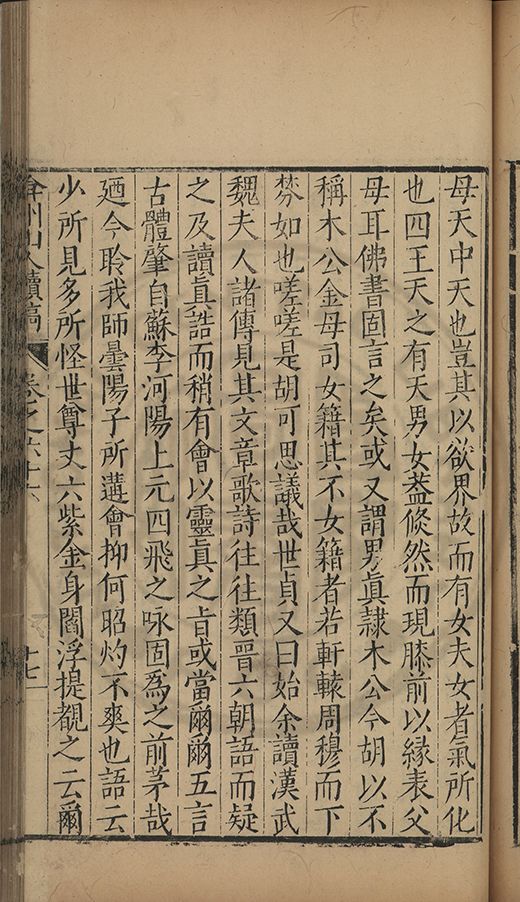 母天中天也豈其以欲界故而有女夫女者氣所化
也四王天之有天男女蓋倐然而現膝前以緣表父
母耳佛書固言之矣或又謂男眞隷木公今胡以不
稱木公金母司女籍其不女籍者若軒轅周穆而下
棼如也嗟嗟是胡可思議哉世貞又曰始余讀漢武
魏夫人諸傳見其文章歌詩往往類晉六朝語而疑
之及讀眞誥而稍有會以靈眞之旨或當爾爾五言
古體肇自蘇李河陽上元四飛之咏固爲之前茅哉
廼今聆我師曇陽子所遘會抑何昭灼不爽也語云
少所見多所怪世尊丈六紫金身閻浮提覩之云爾
弇州山人續稿 卷之六十六 十七